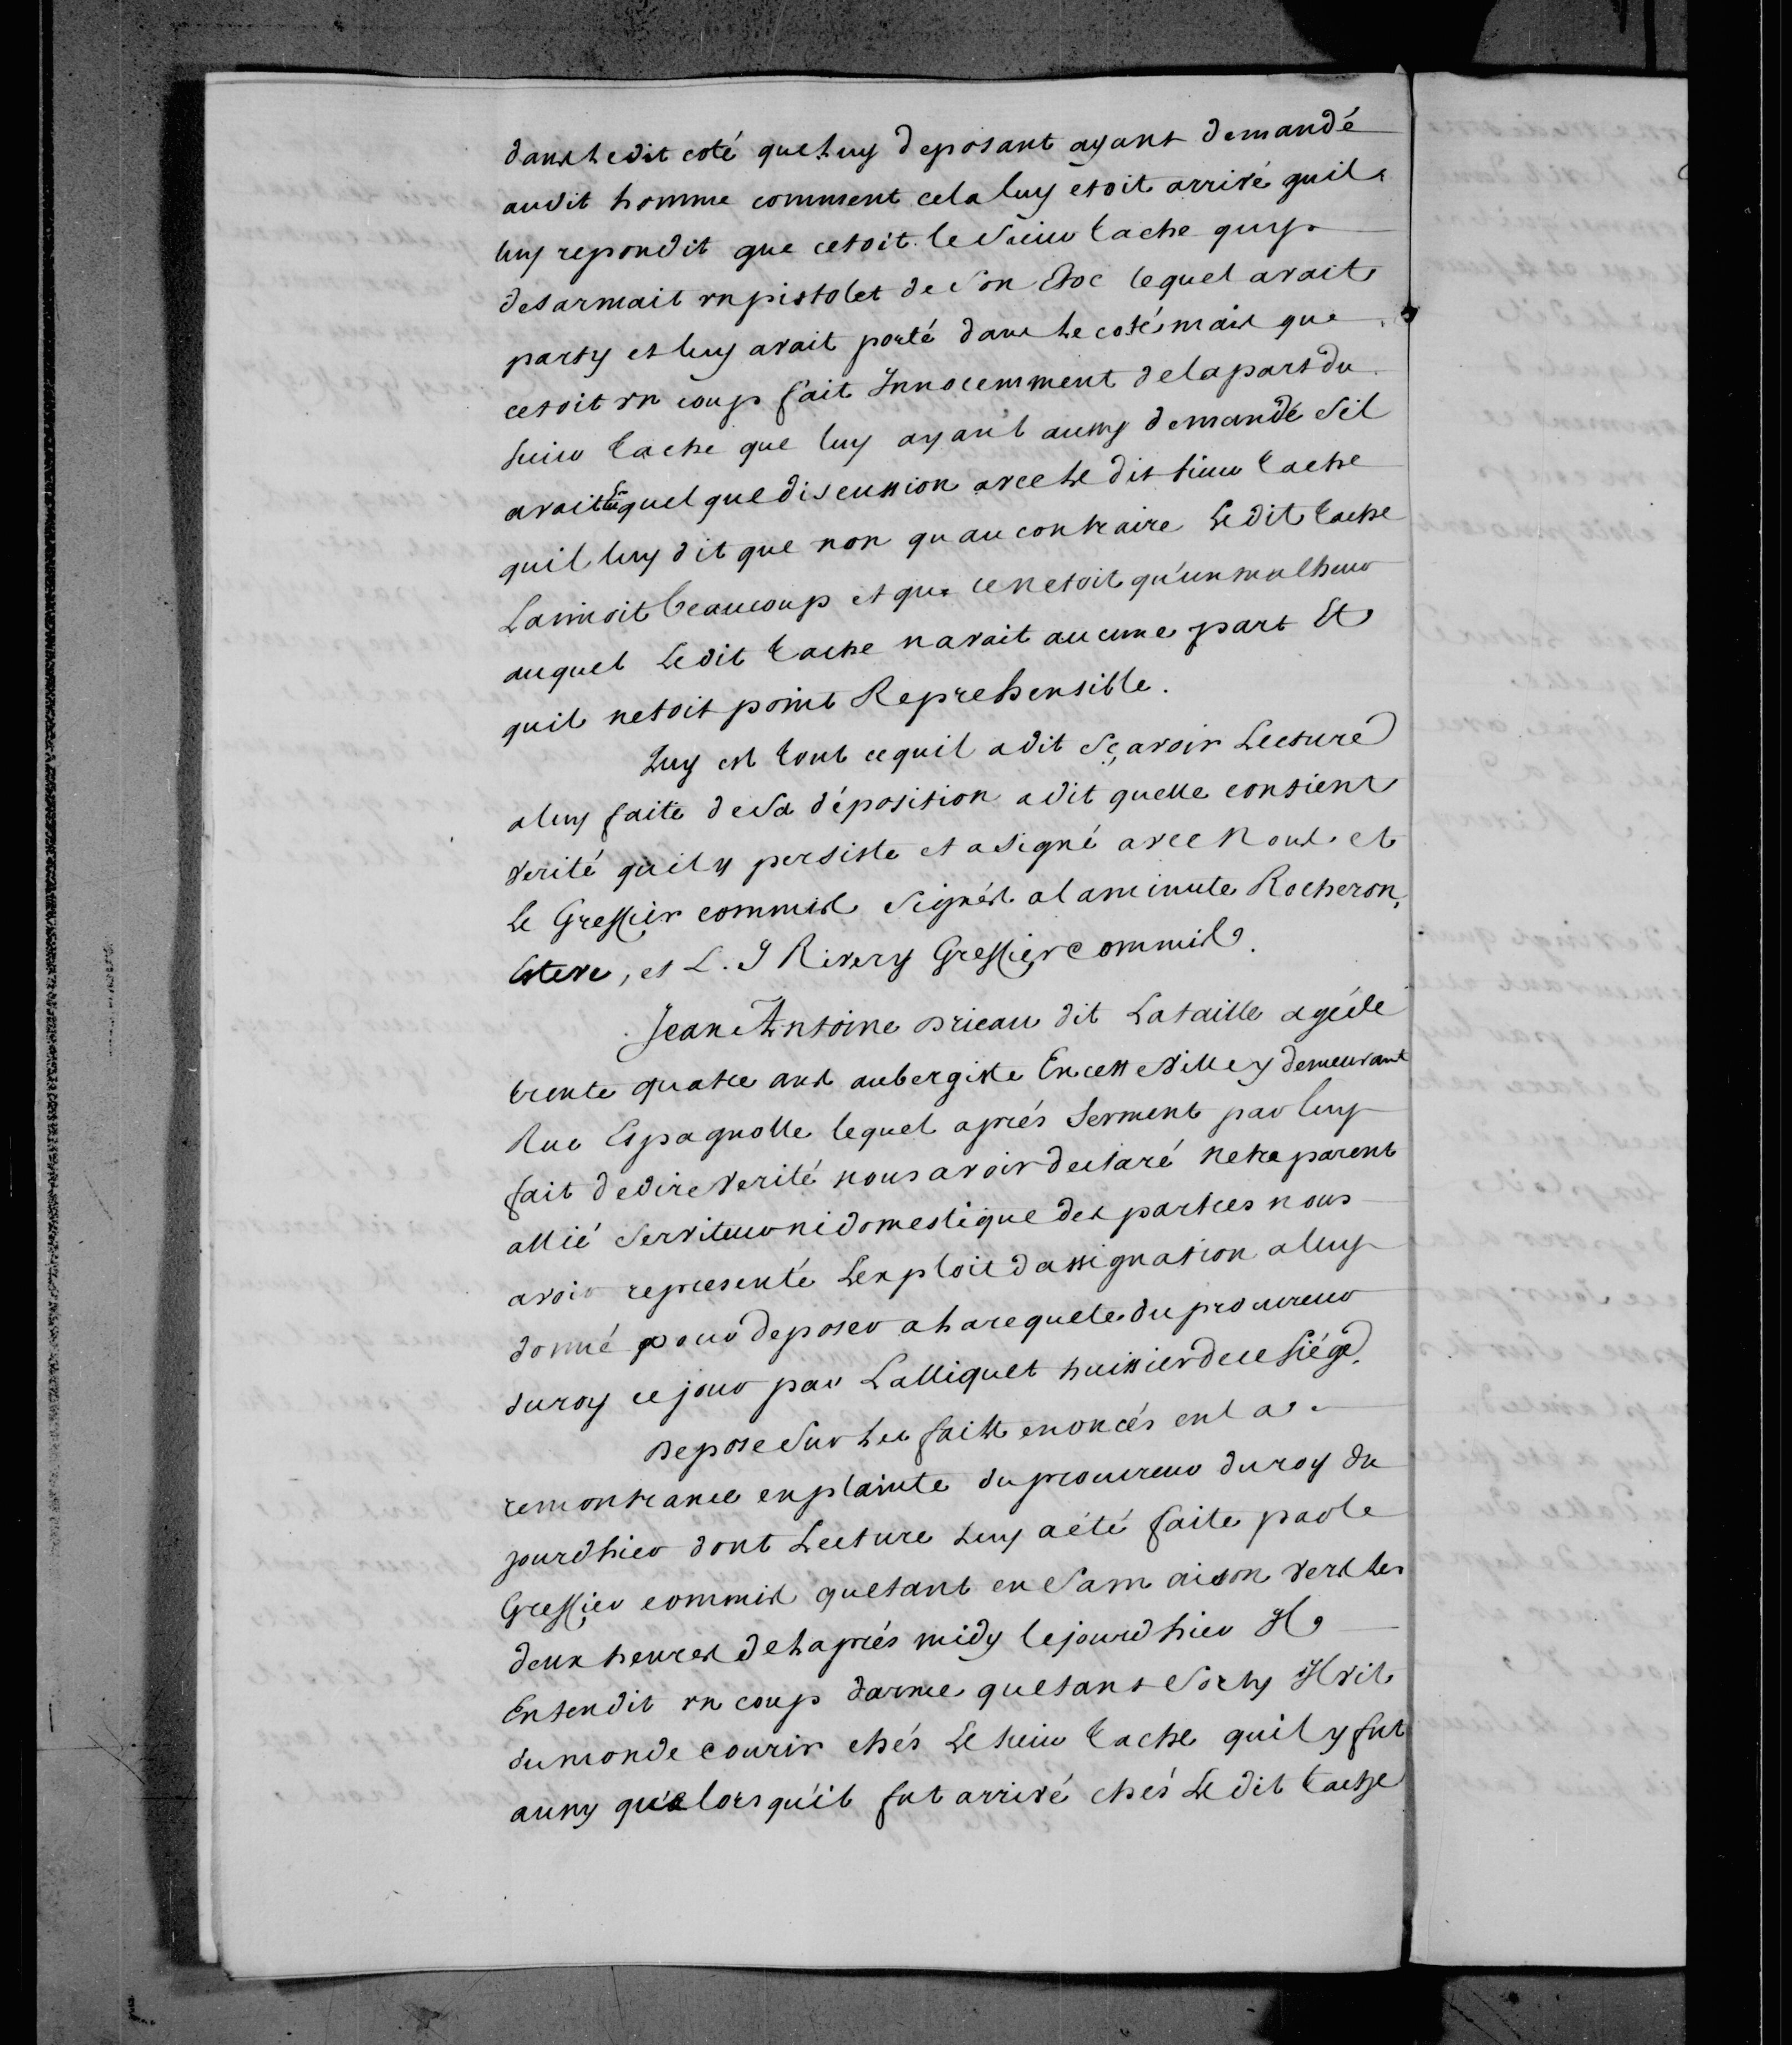 dans Ledit coté que Luy deposant ayant demandé
audit homme comment cela luy etoit arrivé quil
luy repondit que cetoit le Sieur tache quy
desarmait un pistolet de Son Croc lequel avait
party et luy avait porté dans Le coté mais que
cetoit un coup fait Innocemment de la part du
Sieur tache que luy ayant aussy demandé Sil
avait Eü quelque discussion avec Le dit Sieur tache
quil luy dit que non qu au contraire Le dit tache
Laimoit beaucoup et que ce netoit qu'un malheur
auquel Ledit tache navait aucune part Et
quil netoit point Reprehensible.
Quy est tout ce quil a dit Sçavoir Lecture
a luy faite de Sa déposition a dit quelle contient
verité qu'il y persiste et a Signé avec Nous et
le Greffier commis Signés a la minute Rocheron,
Esteve, et L. J Rivery Greffier commis.
Jean Antoine Brieau dit Lataille agé de
trente quatre ans aubergiste En cette Ville y demeurant
Rue Espagnolle lequel aprés Serment par luy
fait de dire verité nous avoir declaré netre parent
allié Serviteur ni domestique des parties nous
avoir representé Lexploit dassignation a luy
donné pour deposer a La requete du procureur
du roy ce jour par Lalliquet huissier de ce Siége.
Depose Sur Les faits enoncés en la
remontrance en plainte du procureur du roy du
jourdhier dont Lecture Luy a été faite par le
Greffier commis quetant en Sa maison vers Les
deux heures de Laprés midy le jourdhier Il
Entendit un coup darme quetant Sorty Il vit
du monde courir chés Le Sieur tache quil y fut
aussy qu'a lorsqu'il fut arrivé chés Le dit tache